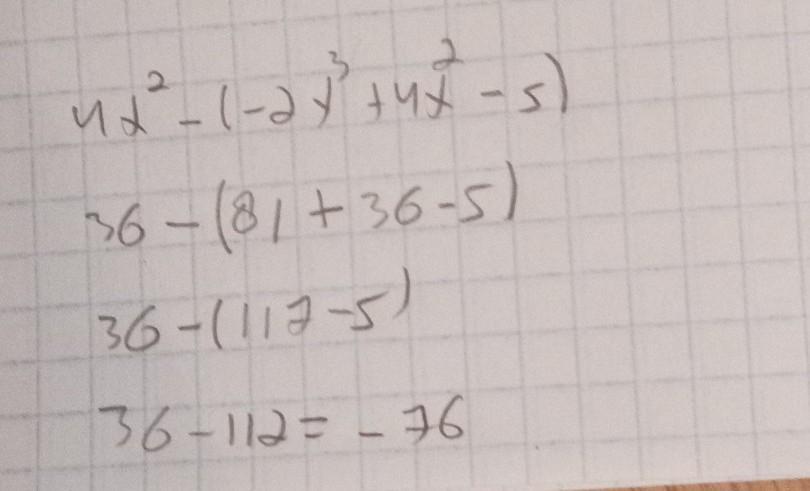 4x² - (-2x³ + 4x² - 5)
36 - (81 + 36 - 5)
36 - (117 - 5)
36 - 112 = - 76